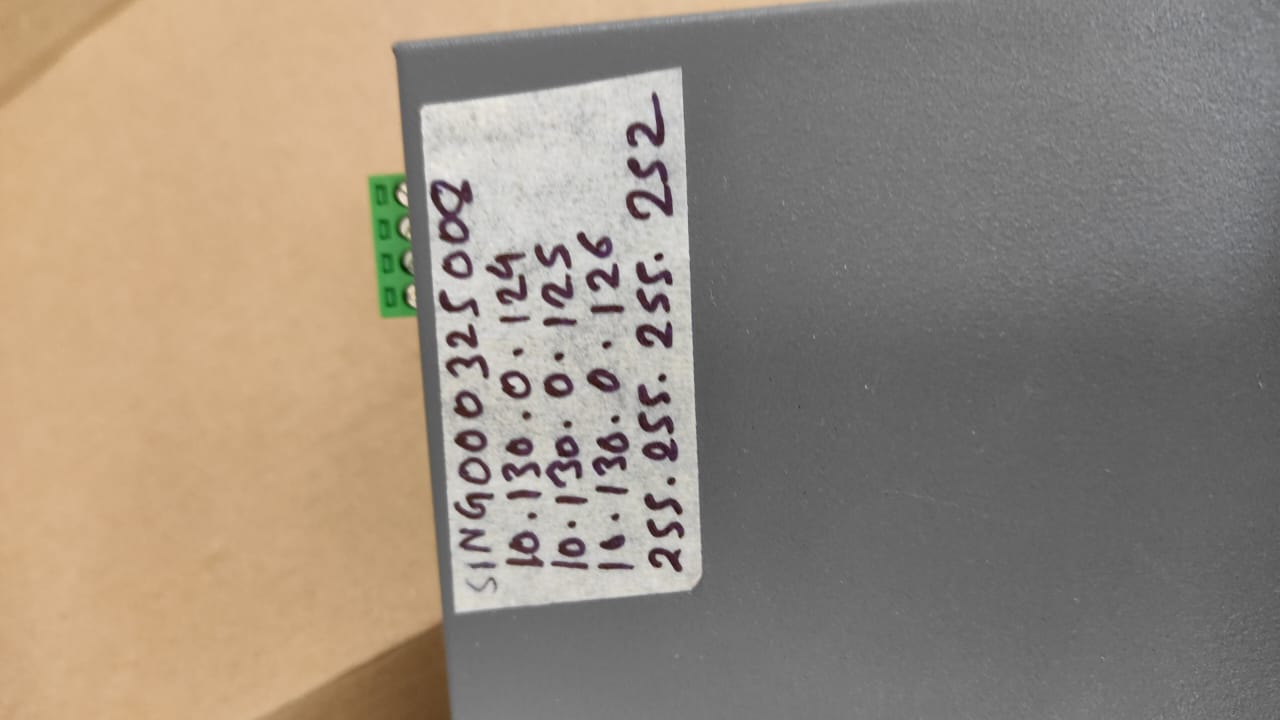 SING000325008
10.130.0.124
10.130.0.125
10.130.0.126
255.255.255.252